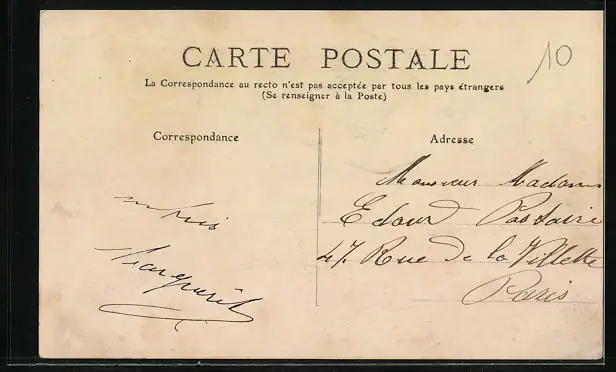 10
CARTE POSTALE
La Correspondance au recto n'est pas acceptée par tous les pays étrangers
(Se renseigner à la Poste)
Correspondance
Adresse
Monsieur Madame
Edour
47 Rue de la Villette
Paris